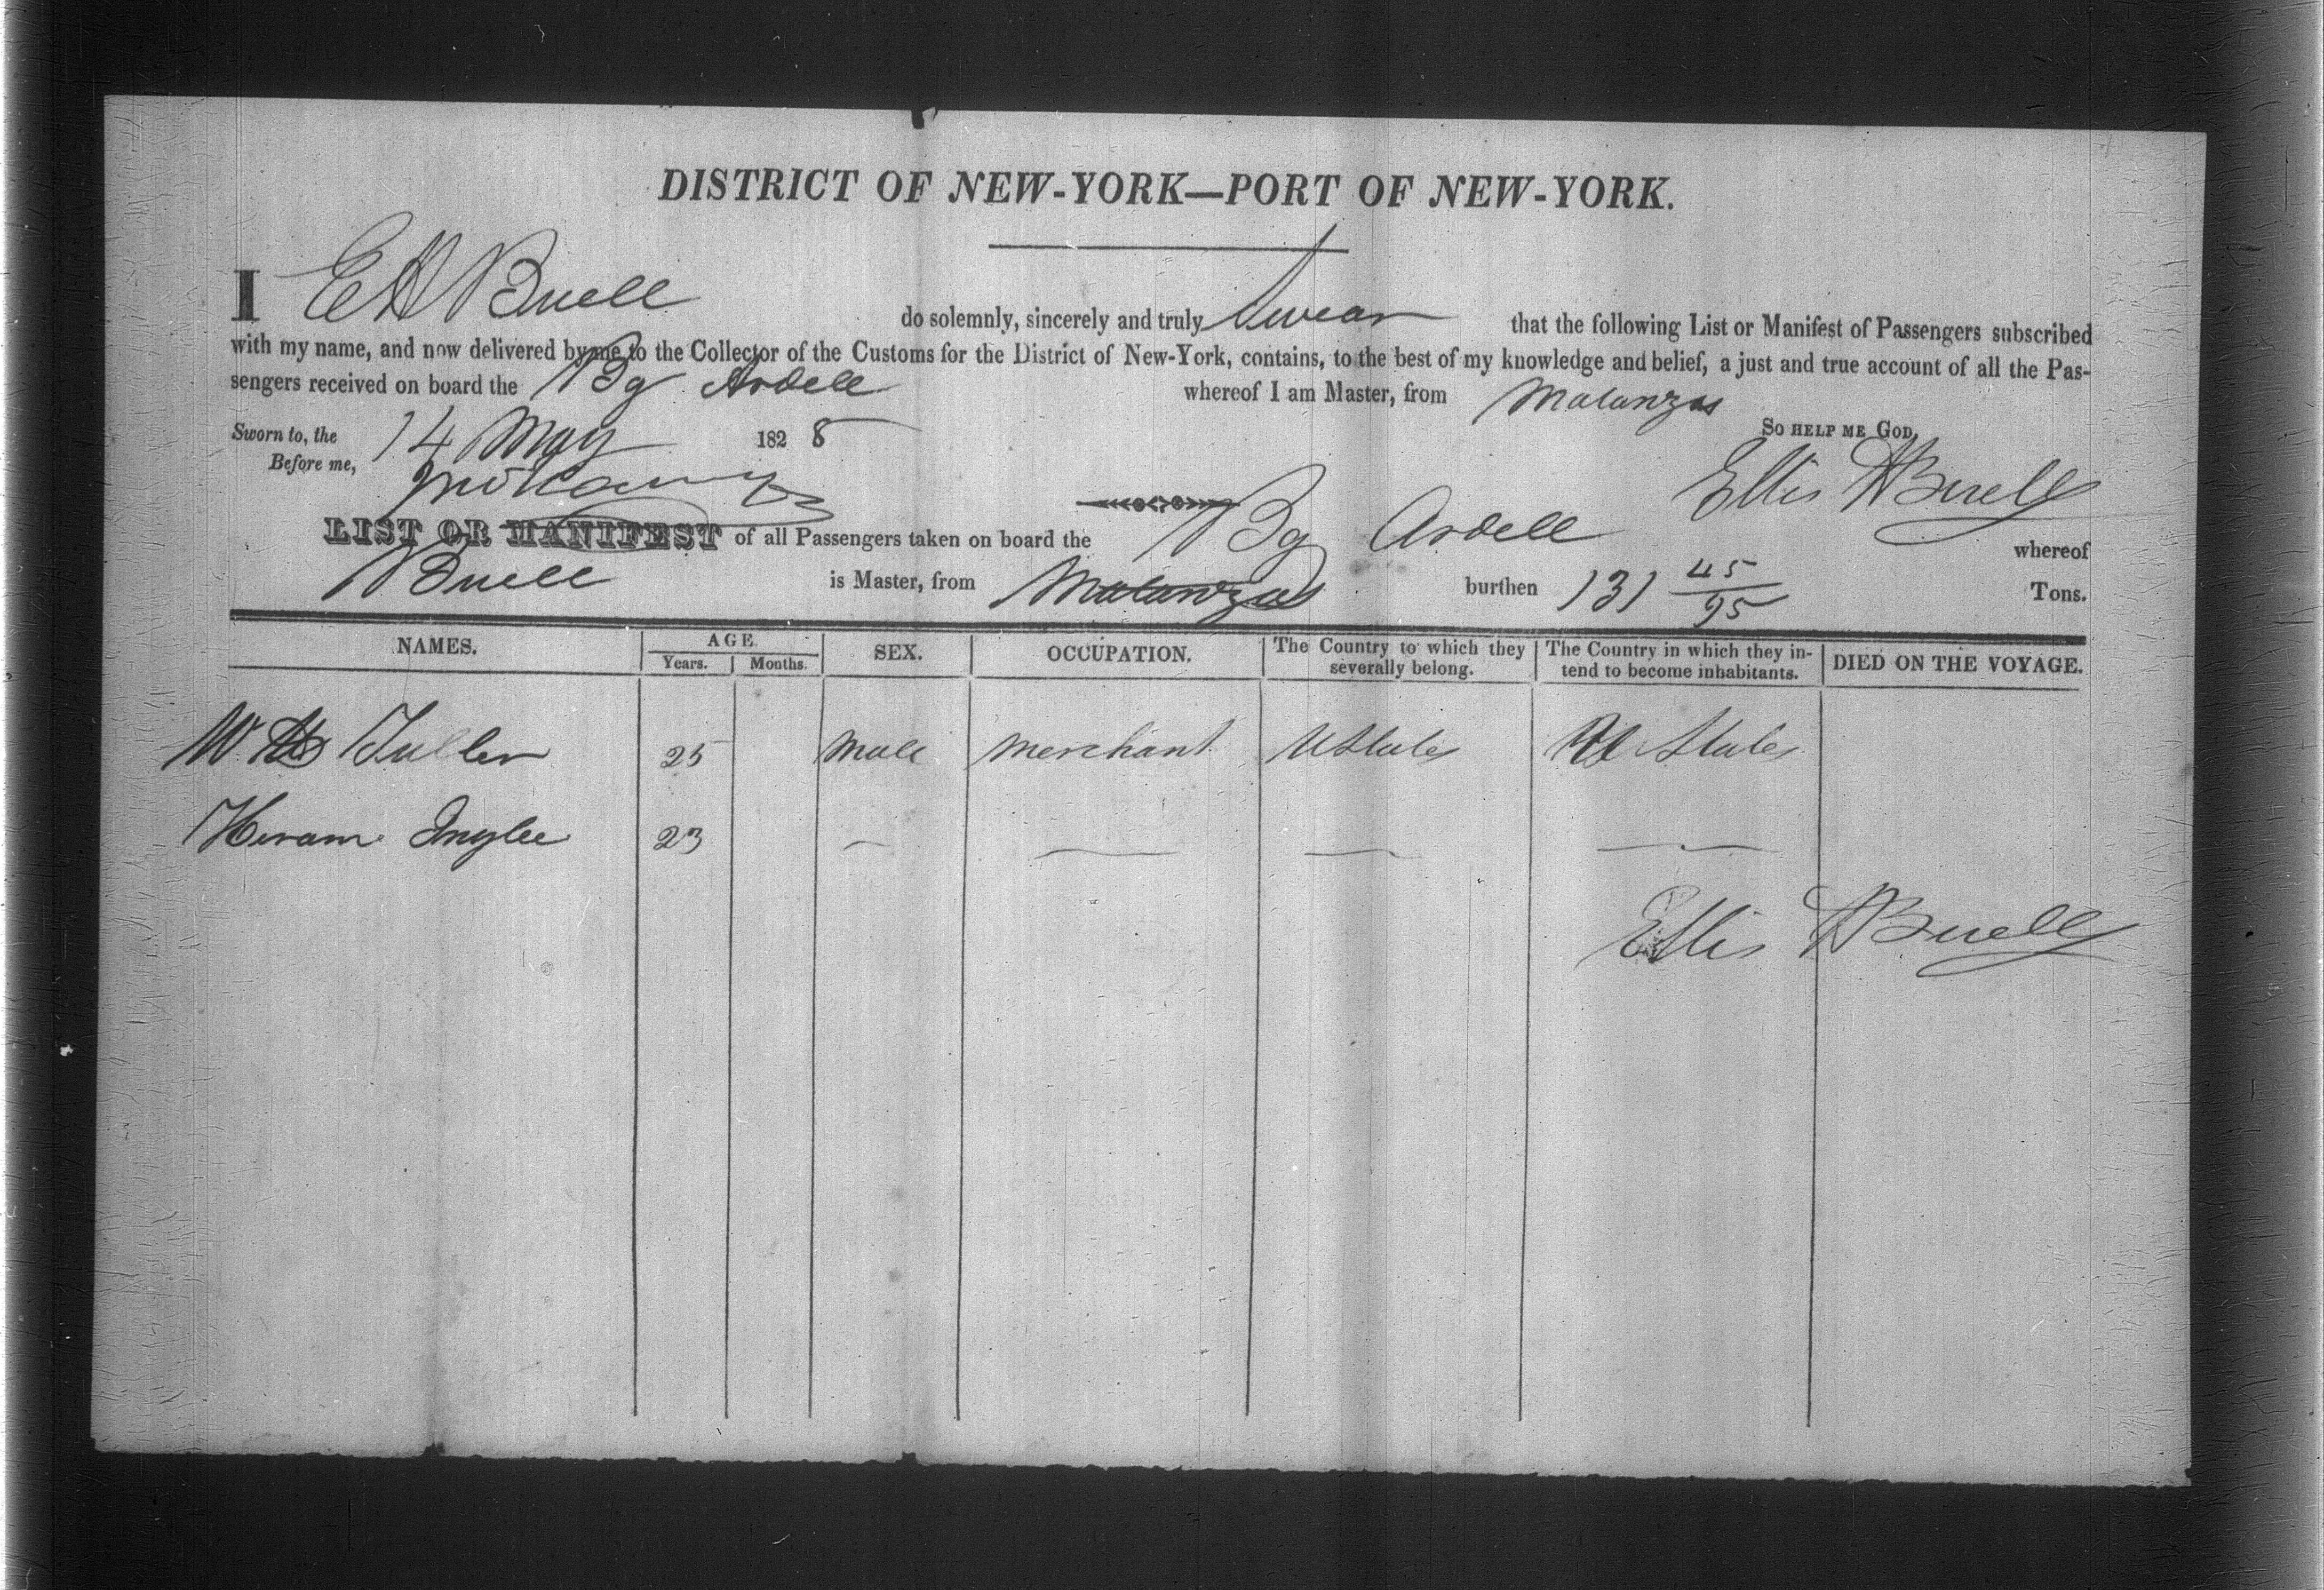 DISTRICT OF NEW-YORK—PORT OF NEW-YORK.
I E H Buell do solemnly, sincerely and truly swear that the following List or Manifest of Passengers subscribed
with my name, and now delivered by me to the Collector of the Customs for the District of New-York, contains, to the best of my knowledge and belief, a just and true account of all the Pas-
sengers received on board the Bg Ardell whereof I am Master, from Matanzas
Sworn to, the 14 May 1828 So HELP ME GOD,
Before me,
Ellis H Buell
LIST OR MANIFEST of all Passengers taken on board the Bg Ardell whereof
Buell is Master, from Matanzas burthen 131 45/95 Tons.
NAMES. AGE. SEX. OCCUPATION. The Country to which they severally belong. The Country in which they in-tend to become inhabitants. DIED ON THE VOYAGE.
Years. Months.
W H Fuller 25 Male Merchant U States U States
Hiram Inglee 23 — — — —
Ellis H Buell